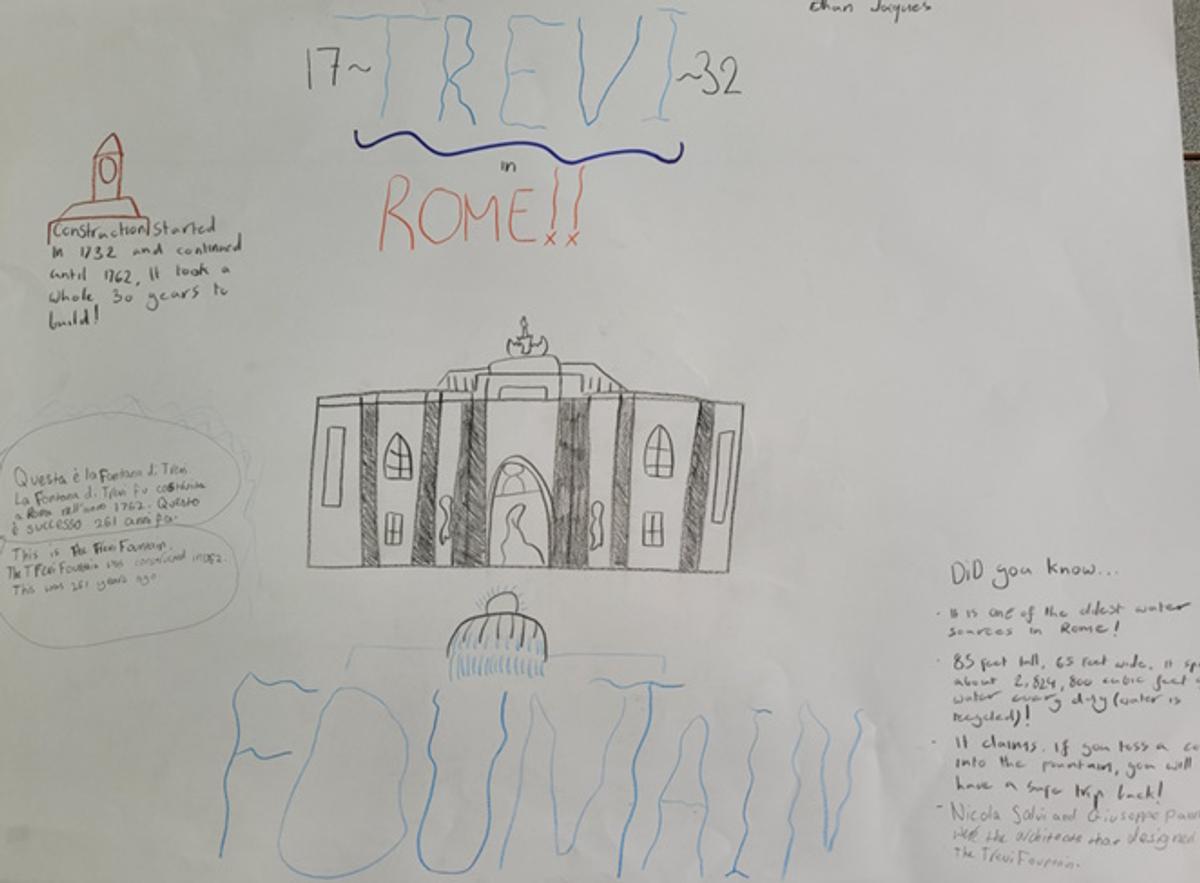 Ethan Jaques
17~TREVI~32
in
ROME!!
Construction started
In 1732 and continued
until 1762, It took a
whole 30 years to
build!
Questa è la Fontana di Trevi
La Fontana di Trevi fu costruita
a Roma nell'anno 1762. Questo
è successo 261 anni fa.
This is the Trevi Fountain.
The Trevi Fountain was constructed in 1762.
This was 261 years ago.
FOUNTAIN
DiD you know...
· It is one of the oldest water
sources in Rome!
· 85 feet tall, 65 feet wide. It sp
about 2,824,800 cubic feet
water every day (water is
recycled)!
· It claims. if you toss a co
into the fountain, you will
have a safe trip back!
- Nicola Salvi and Giuseppe Pann
were the architects that designed
The Trevi Fountain.